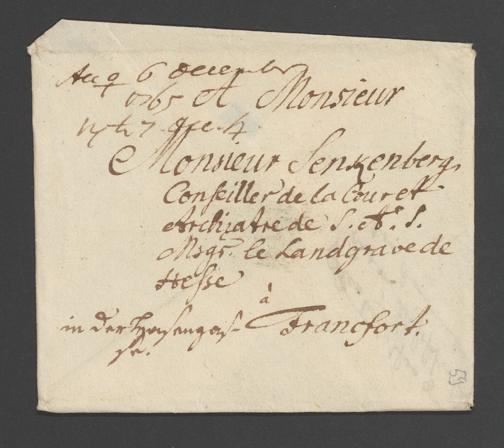 6 Decembr
1765 A Monsieur
Monsieur Senkenberg
Conseiller de la Cour et
Archiatre de S. A. S.
Msgr. le Landgrave de
Hesse
à
in der Hasengas- Francfort.
se.
53